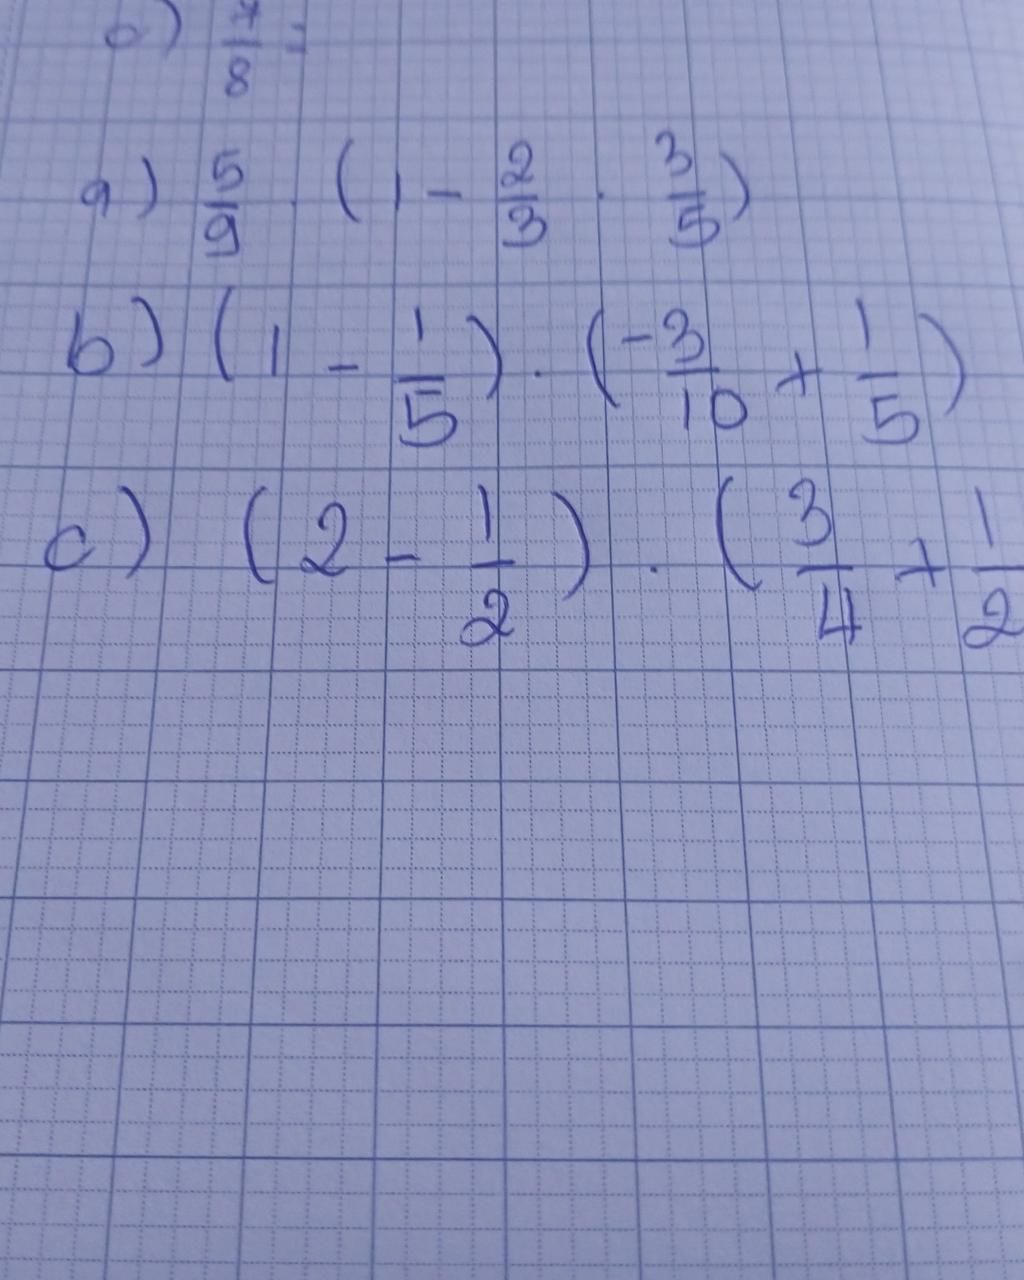 c) 7/8 =
a) 5/9 . (1 - 2/3 . 3/5)
b) (1 - 1/5) . (-3/10 + 1/5)
c) (2 - 1/2) . (3/4 + 1/2